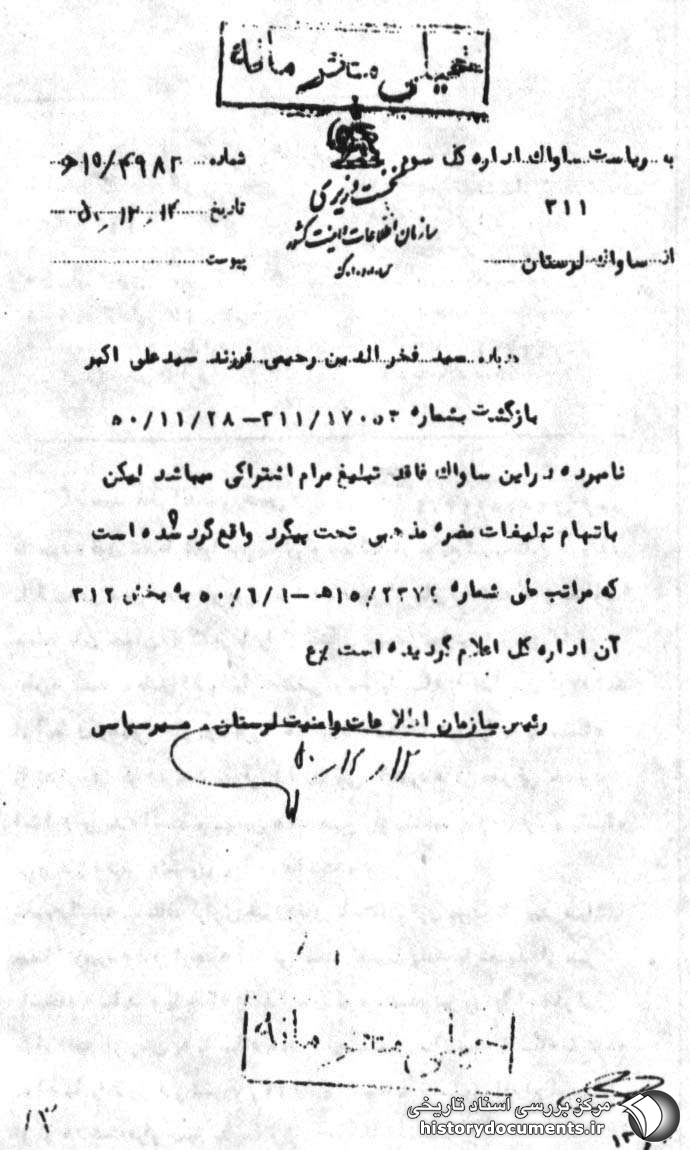 خیلی محرمانه
به ریاست ساواك اداره كل سوم
۳۱۱
از ساواك لرستان
نخست وزیری
سازمان اطلاعات و امنیت کشور
س.ا.و.ا.ك
شماره ۱۵/۴۹۸۲ه
تاریخ ۵۰-۱۲-۱۴
پیوست
درباره سید فخرالدین رحیمی فرزند سیدعلی اکبر
بازگشت بشماره ۳۱۱/۱۷۰۵۳-۵۰/۱۱/۲۸
نامبرده دراین ساواك فاقد تبلیغ مرام اشتراکی میباشد لیکن
باتهام تبلیغات مضره مذهبی تحت پیگرد واقع گردیده است
که مراتب طی شماره ۱۵/۲۳۷۴ه-۵۰/۶/۱ به بخش ۳۱۲
آن اداره كل اعلام گردیده است
رئیس سازمان اطلاعات وامنیت لرستان
خیلی محرمانه
۱۲
مرکز بررسی اسناد تاریخی
historydocuments.ir